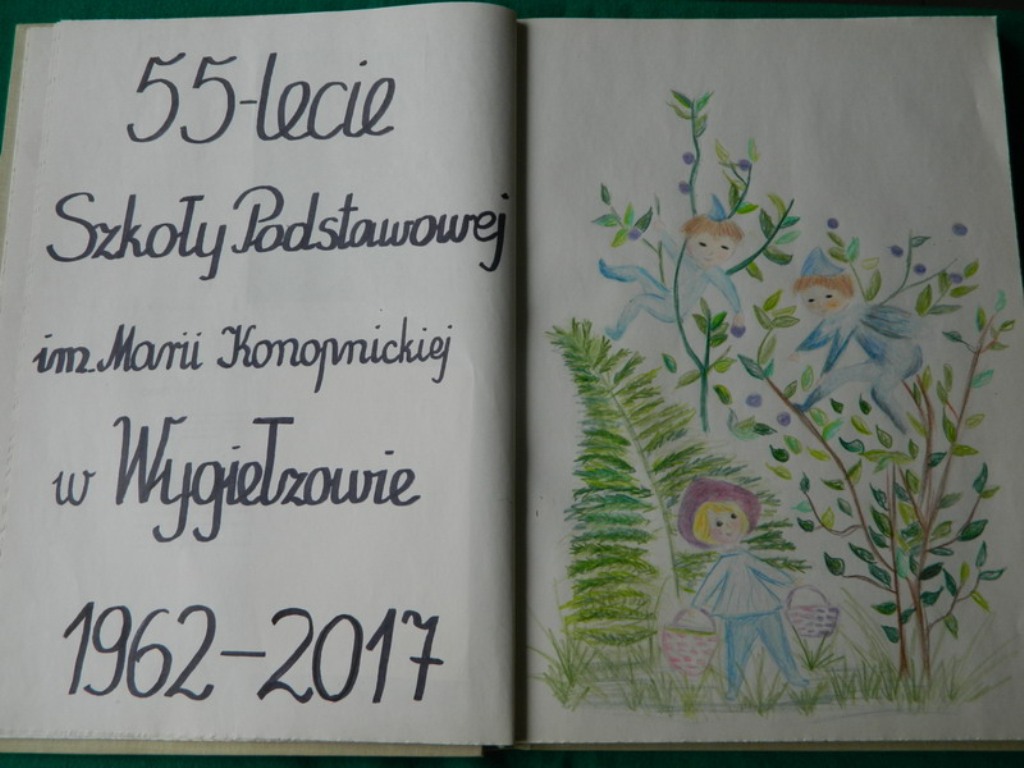 55-lecie
Szkoły Podstawowej
im. Marii Konopnickiej
w Wygiełzowie
1962-2017